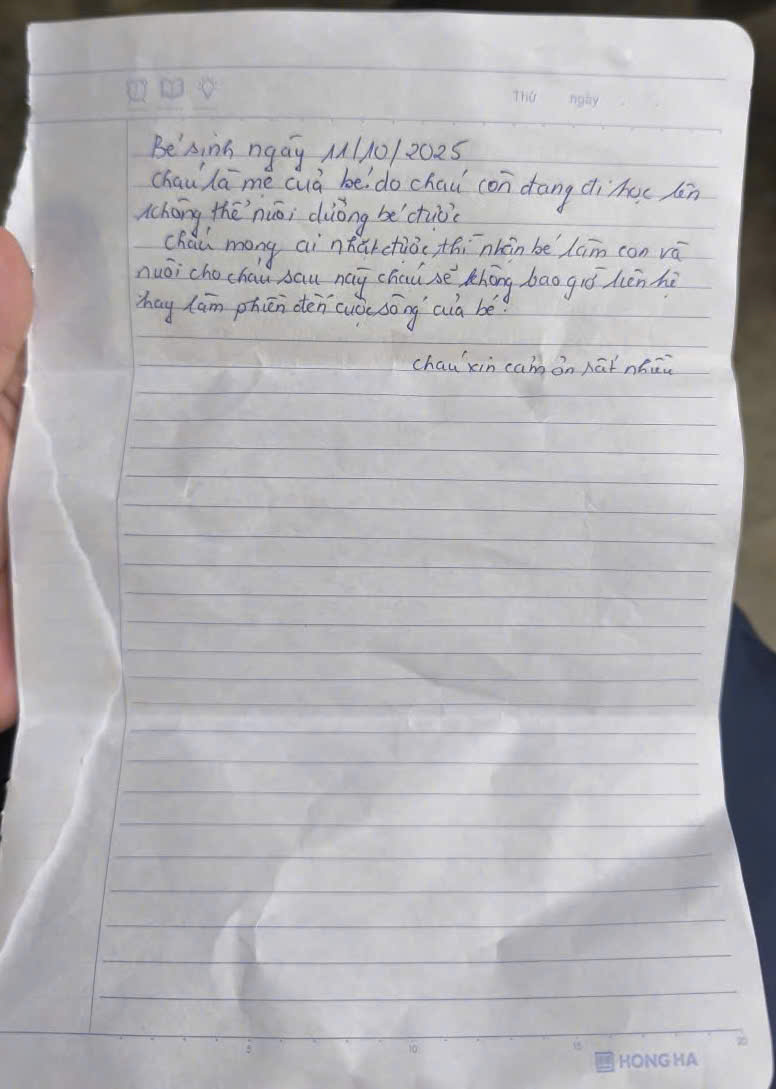 Thứ ngày
Bé sinh ngày 11/10/2025
cháu là mẹ của bé. do cháu còn đang đi học lên
không thể nuôi dưỡng bé được
cháu mong ai nhặt được, thì nhận bé làm con và
nuôi cho cháu sau này cháu sẽ không bao giờ liên hệ
hay làm phiền đến cuộc sống của bé.
cháu xin cảm ơn rất nhiều
5 10 15 20
HONG HA